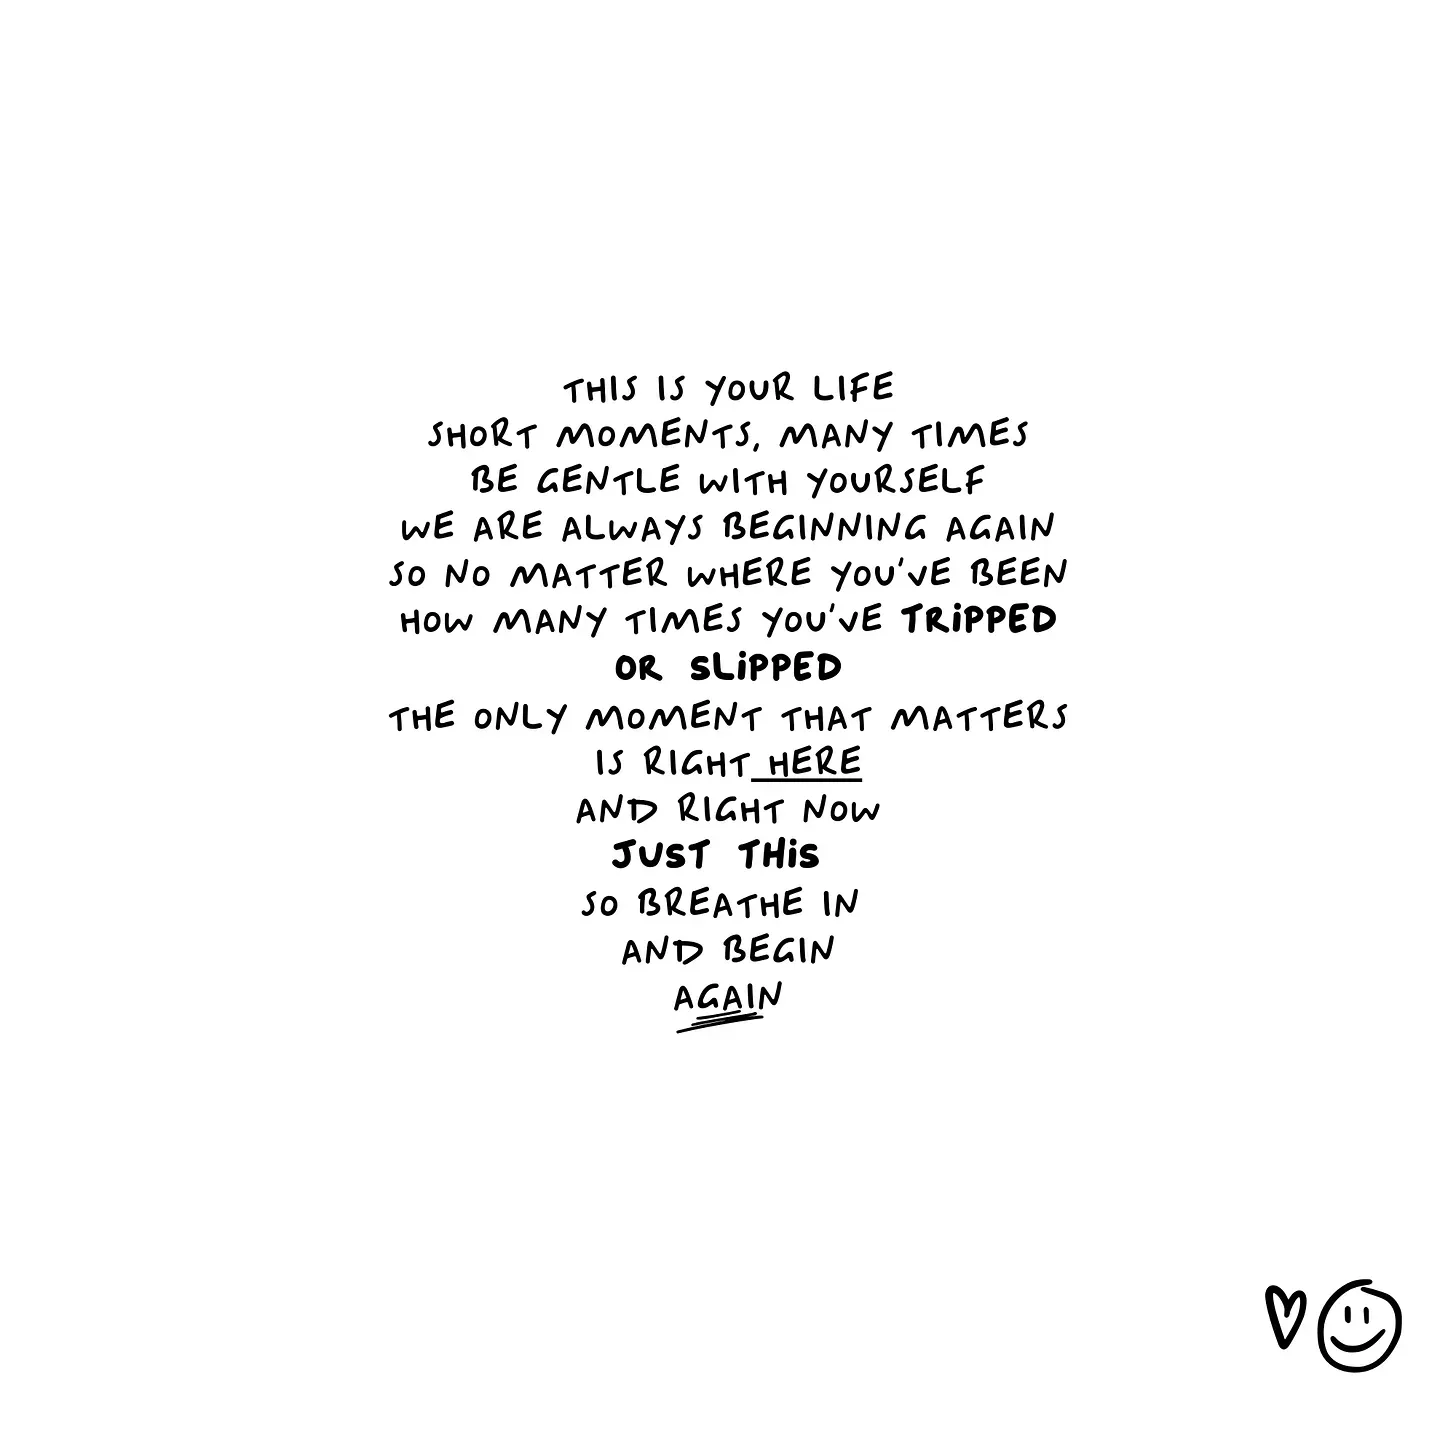 THIS IS YOUR LIFE
SHORT MOMENTS, MANY TIMES
BE GENTLE WITH YOURSELF
WE ARE ALWAYS BEGINNING AGAIN
SO NO MATTER WHERE YOU'VE BEEN
HOW MANY TIMES YOU'VE TRiPPED
OR SLiPPED
THE ONLY MOMENT THAT MATTERS
IS RIGHT HERE
AND RIGHT NOW
JUST THiS
SO BREATHE IN
AND BEGIN
AGAIN